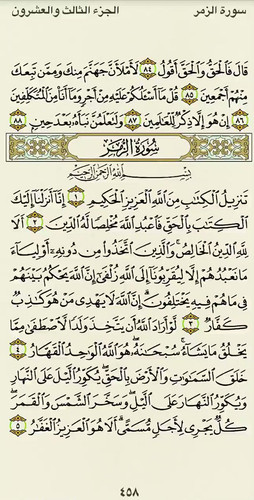 سورة الزمر الجزء الثالث والعشرون
قَالَ فَٱلْحَقُّ وَٱلْحَقَّ أَقُولُ ٨٤ لَأَمْلَأَنَّ جَهَنَّمَ مِنكَ وَمِمَّن تَبِعَكَ
مِنْهُمْ أَجْمَعِينَ ٨٥ قُلْ مَآ أَسْـَٔلُكُمْ عَلَيْهِ مِنْ أَجْرٍ وَمَآ أَنَا۠ مِنَ ٱلْمُتَكَلِّفِينَ
٨٦ إِنْ هُوَ إِلَّا ذِكْرٌ لِّلْعَٰلَمِينَ ٨٧ وَلَتَعْلَمُنَّ نَبَأَهُۥ بَعْدَ حِينٍۭ ٨٨
سُورَةُ الزُّمَرِ
بِسْمِ ٱللَّهِ ٱلرَّحْمَٰنِ ٱلرَّحِيمِ
تَنزِيلُ ٱلْكِتَٰبِ مِنَ ٱللَّهِ ٱلْعَزِيزِ ٱلْحَكِيمِ ١ إِنَّآ أَنزَلْنَآ إِلَيْكَ
ٱلْكِتَٰبَ بِٱلْحَقِّ فَٱعْبُدِ ٱللَّهَ مُخْلِصًا لَّهُ ٱلدِّينَ ٢ أَلَا
لِلَّهِ ٱلدِّينُ ٱلْخَالِصُ ۚ وَٱلَّذِينَ ٱتَّخَذُوا۟ مِن دُونِهِۦٓ أَوْلِيَآءَ
مَا نَعْبُدُهُمْ إِلَّا لِيُقَرِّبُونَآ إِلَى ٱللَّهِ زُلْفَىٰٓ إِنَّ ٱللَّهَ يَحْكُمُ بَيْنَهُمْ
فِى مَا هُمْ فِيهِ يَخْتَلِفُونَ ۗ إِنَّ ٱللَّهَ لَا يَهْدِى مَنْ هُوَ كَٰذِبٌ
كَفَّارٌ ٣ لَّوْ أَرَادَ ٱللَّهُ أَن يَتَّخِذَ وَلَدًا لَّٱصْطَفَىٰ مِمَّا
يَخْلُقُ مَا يَشَآءُ ۚ سُبْحَٰنَهُۥ ۖ هُوَ ٱللَّهُ ٱلْوَٰحِدُ ٱلْقَهَّارُ ٤
خَلَقَ ٱلسَّمَٰوَٰتِ وَٱلْأَرْضَ بِٱلْحَقِّ ۖ يُكَوِّرُ ٱلَّيْلَ عَلَى ٱلنَّهَارِ
وَيُكَوِّرُ ٱلنَّهَارَ عَلَى ٱلَّيْلِ ۖ وَسَخَّرَ ٱلشَّمْسَ وَٱلْقَمَرَ ۖ
كُلٌّ يَجْرِى لِأَجَلٍ مُّسَمًّى ۗ أَلَا هُوَ ٱلْعَزِيزُ ٱلْغَفَّٰرُ ٥
٤٥٨